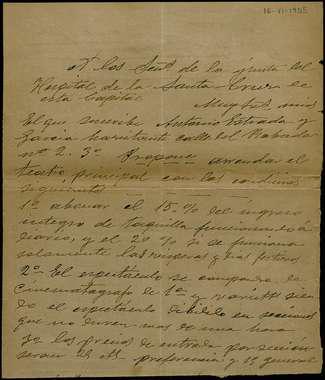 16-VI-1905
A los Señs de la junta del
Hospital de la Santa Cruz de
esta Capital
Muy Srs. mios
El que suscribe Antonio Estrada y
Garcia habitante calle del Robador
nº 2. 3º Propone arrendar el
teatro principal con las condiciones
siguientes
1ª abonar el 15 % del ingreso
integro de taquilla funcionando á
diario, y el 20 % si se funciona
solamente las visperas y dias festivos
2ª El espectáculo se compondra de
Cinematografo de 1ª y varietes sien-
do el espectáculo dividido en secciones
que no duren mas de una hora
y los precios de entrada por sección
seran el preferencia y general